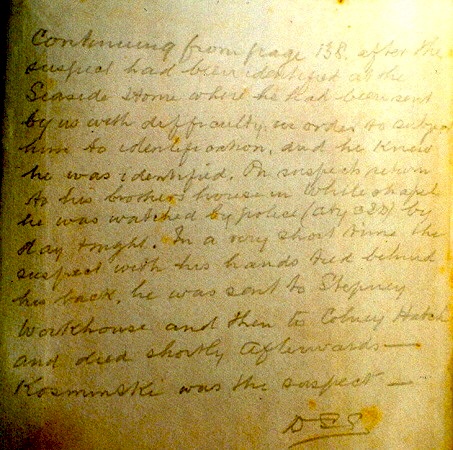 Continuing from page 138. after the
suspect had been identified at the
Seaside Home where he had been sent
by us with difficulty, in order to subject
him to identification, and he knew
he was identified. On suspects return
to his brothers house in Whitechapel
he was watched by police (City CID) by
day & night. In a very short time the
suspect with his hands tied behind
his back, he was sent to Stepney
Workhouse and then to Colney Hatch
and died shortly afterwards—
Kosminski was the suspect —
DSS